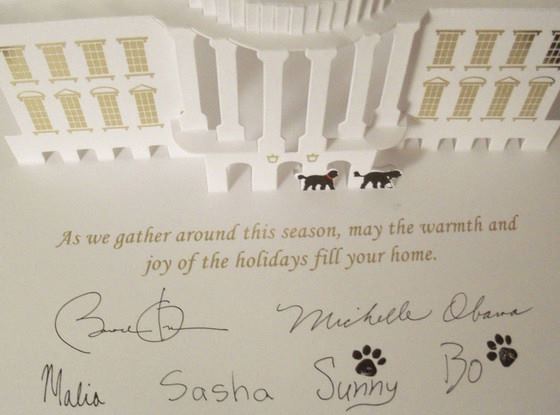 As we gather around this season, may the warmth and
joy of the holidays fill your home.
Barack Obama Michelle Obama
Malia Sasha Sunny Bo